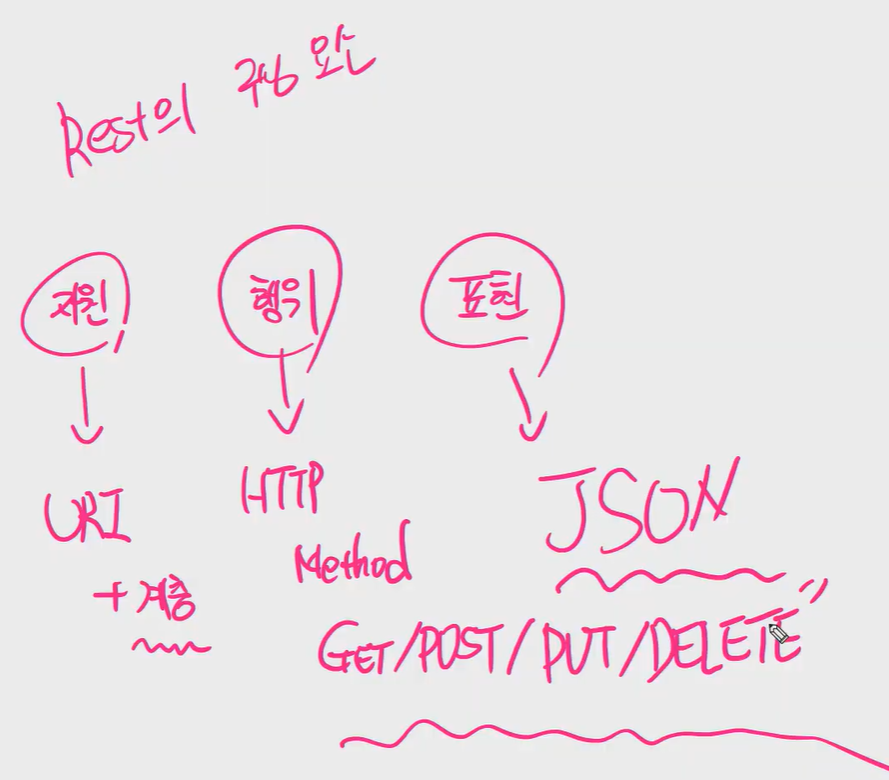 Rest의 구성 요소
자원
행위
표현
URI
+ 계층
HTTP
Method
JSON
GET/POST/PUT/DELETE